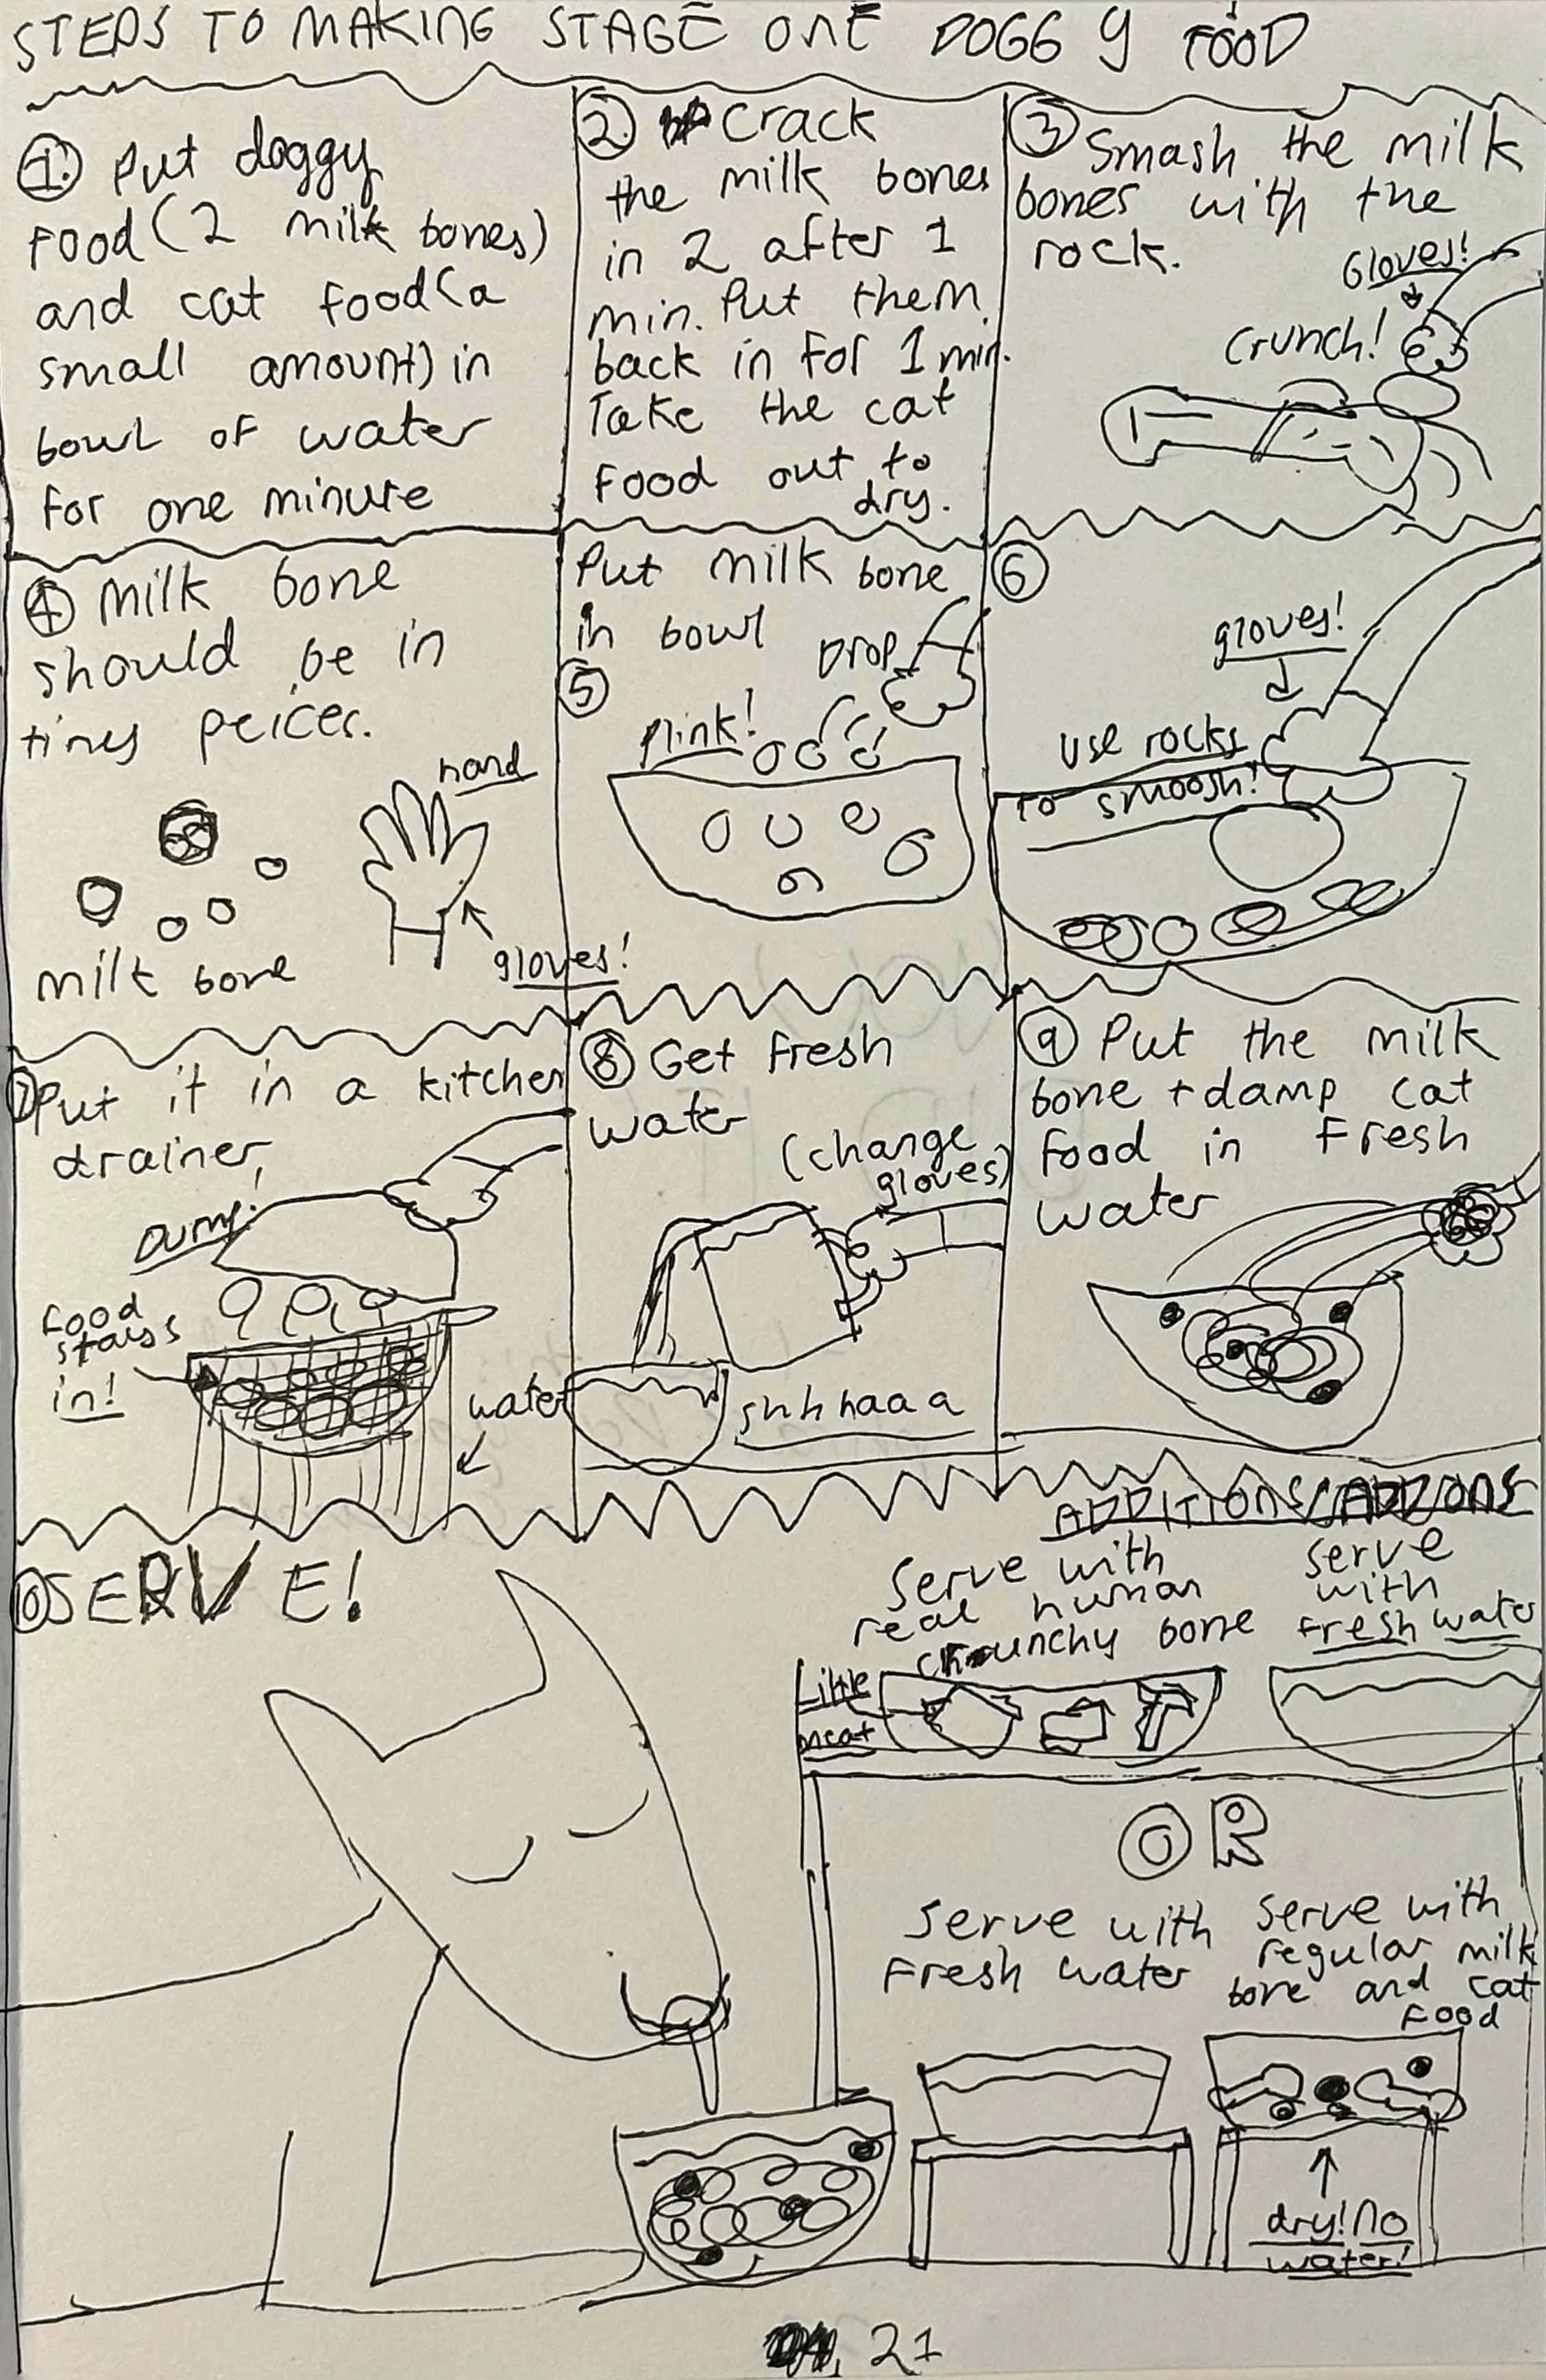 STEPS TO MAKING STAGE ONE DOGGY FOOD
1. Put doggy
food (2 milk bones)
and cat food (a
small amount) in
bowl of water
for one minute
2. Crack
the milk bones
in 2 after 1
min. Put them
back in for 1 min.
Take the cat
food out to
dry.
3 Smash the milk
bones with the
rock.
Gloves!
Crunch!
4 milk bone
should be in
tiney peices.
hand
milk bone
gloves!
Put milk bone
in bowl
Drop
5
plink!
6
gloves!
use rocks
to smoosh!
7 Put it in a kitchen
drainer,
Dump!
food
stays
in!
water
8 Get fresh
water
(change
gloves)
shhhaaa
9 Put the milk
bone + damp cat
food in fresh
water
10 SERVE!
ADDITIONS/ADDONS
Serve with
real human
crunchy bone
Little
meat
serve
with
fresh water
OR
Serve with
fresh water
serve with
regular milk
bone and cat
food
dry! No
water!
21